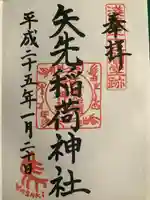 奉拝
矢先稲荷神社
平成二十五年一月二十日